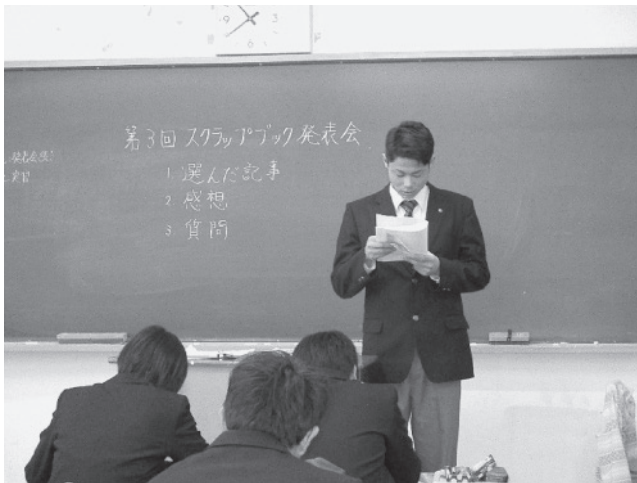 第3回 スクラップブック発表会
1. 選んだ記事
2. 感想
3. 質問
9
3
6